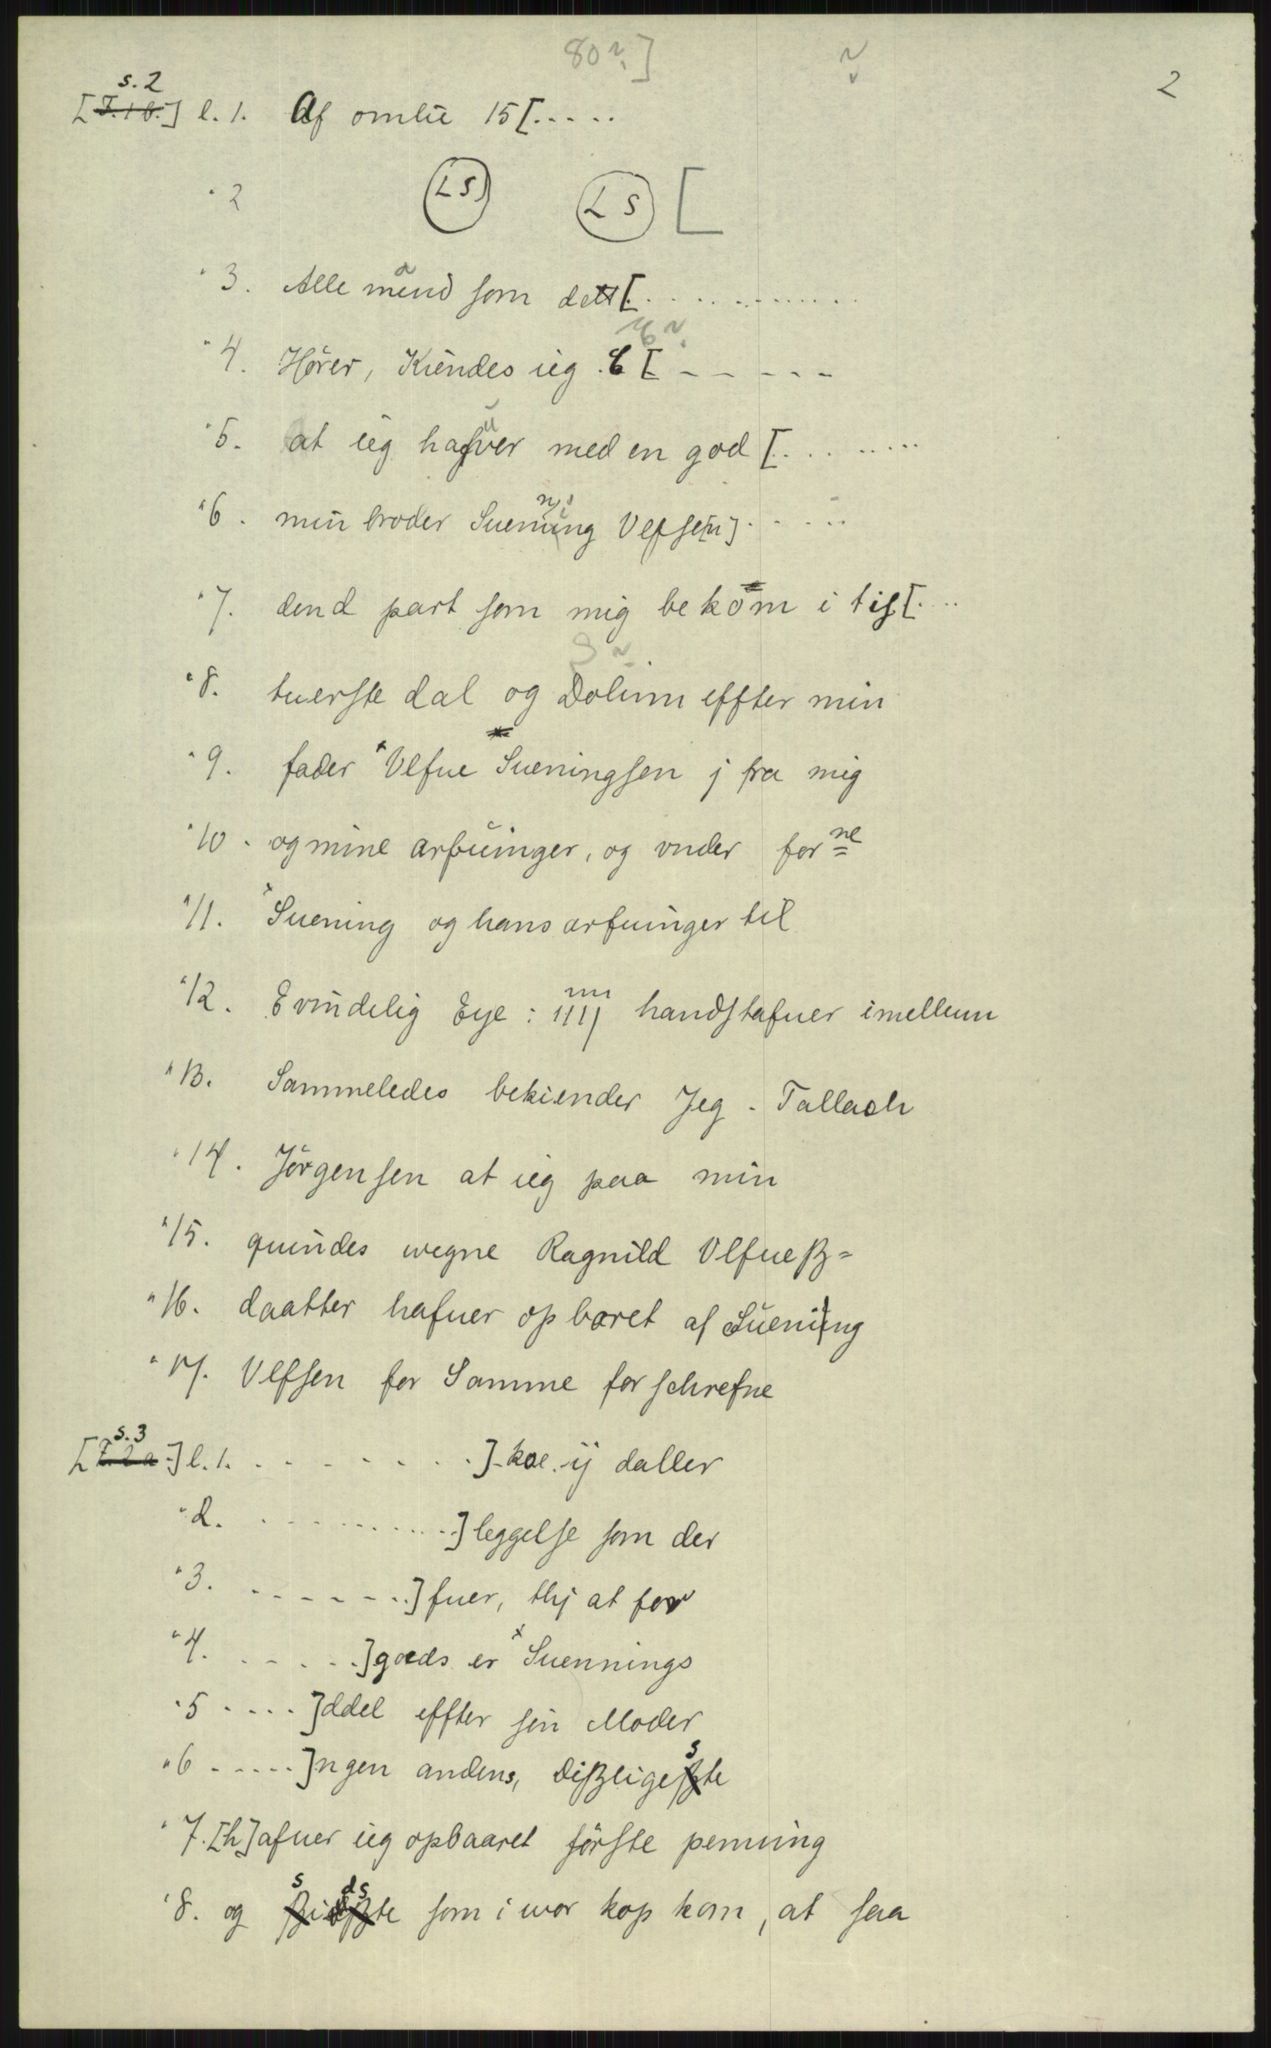 80 ?]
2
s. 2
[F. 1 b.] l. 1. Af omlie 15 [.....
" 2 LS LS [
" 3. Alle mend som dett [............
" 4. Hører, Kiendes ieg [- - - - -
" 5. at ieg hafver med en god [.........
" 6. min broder Suenning Vlfse[n].....
" 7. dend part som mig bekom i tis[....
" 8. tuerste dal og Dolium effter min
" 9. fader Vlfue Sueningsen j fra mig
" 10. og mine arfuinger, og vnder for ne
" 11. Suening og hans arfuinger til
" 12. Evindelig Eye: iiij handstafuer imellum
" 13. Sammeledes bekiender Jeg. Tallach
" 14. Jørgensen at ieg paa min
" 15. quindes wegne Ragnild Vlfueß=
" 16. daatter hafuer opbaret af Suening
" 17. Vlfsen for Samme forschrefne
s. 3
[F. 2 a.] l. 1. .........] koe. ij daller
" 2. ..........] leggelse som der
" 3. .......] fuer, thj at for
" 4. .....] gods er Suennings
" 5 ....] ddel effter sin Moder
" 6 .....] ngen andens, dißligeste
" 7. [h]afuer ieg opbaaret första penning
" 8. og sidste som i wor kop kom, at saa